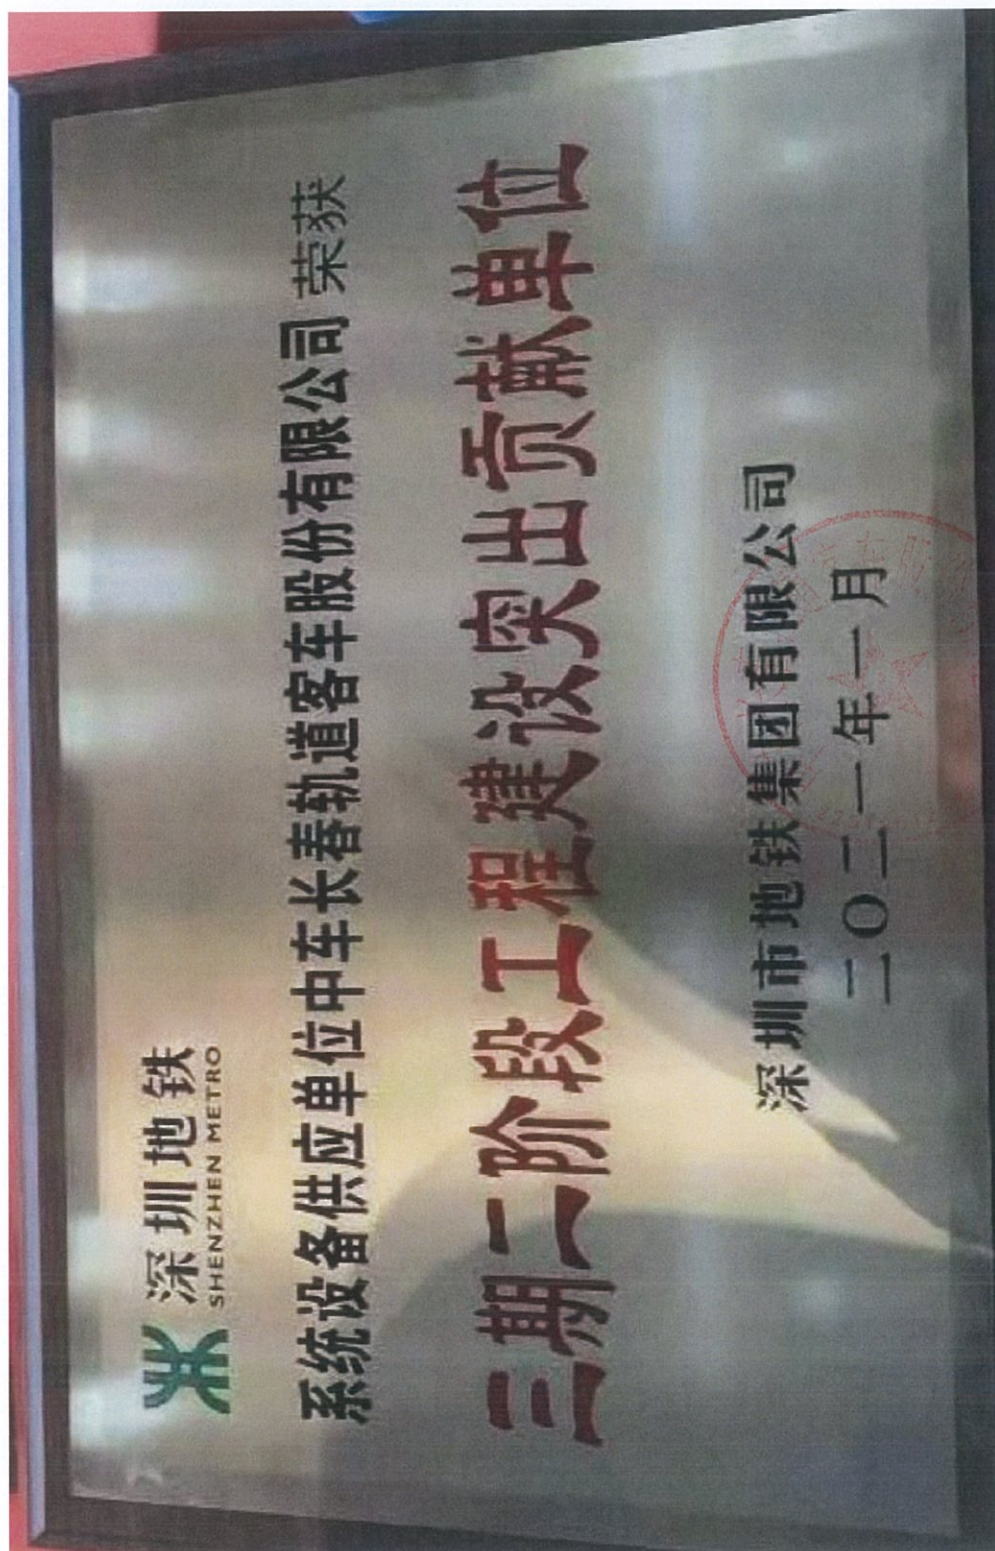 深圳地铁
SHENZHEN METRO
系统设备供应单位中车长春轨道客车股份有限公司 荣获
三期二阶段工程建设突出贡献单位
深圳市地铁集团有限公司
二〇二一年一月